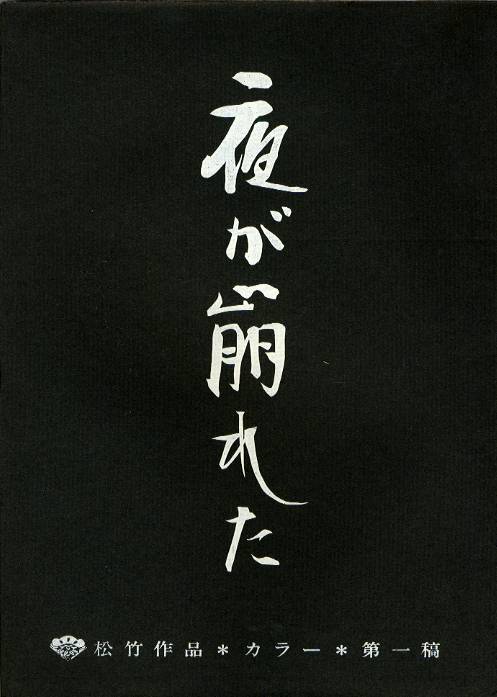 夜が崩れた
松竹作品＊カラー＊第一稿